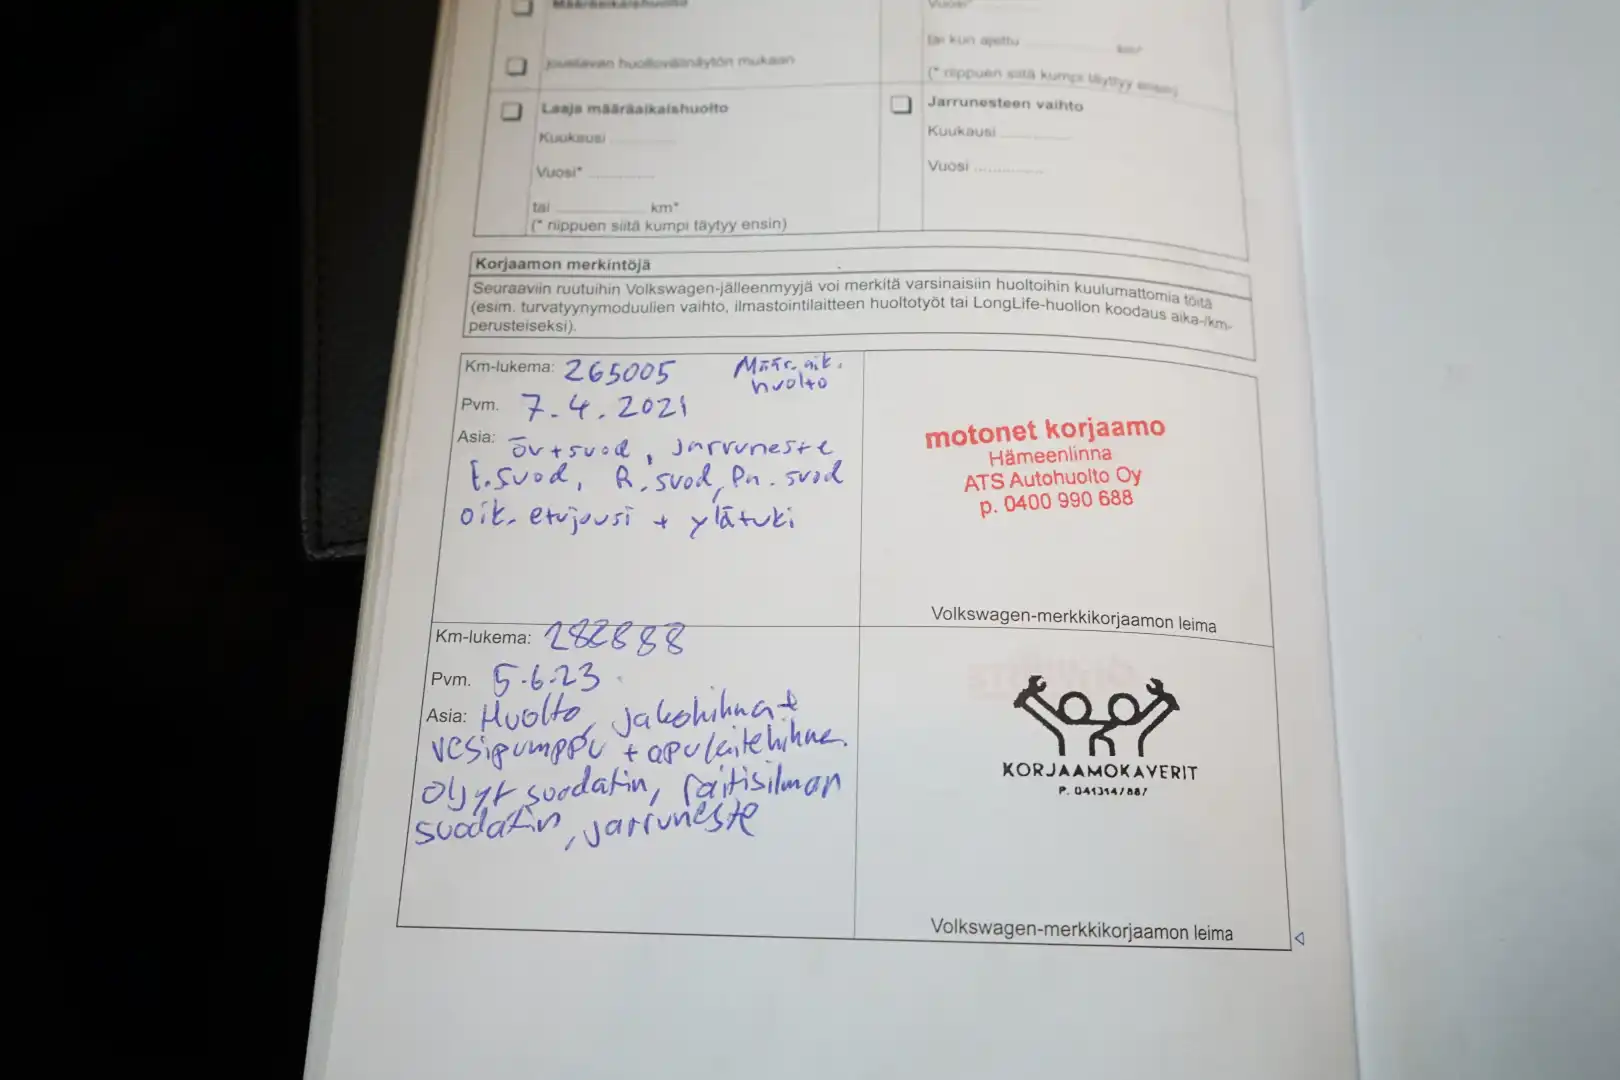 Määräaikaishuolto
Joustavan huoltovälinäytön mukaan
Laaja määräaikaishuolto
Kuukausi ............
Vuosi* ............
tai ............ km*
(* riippuen siitä kumpi täytyy ensin)
Vuosi*
tai kun ajettu ............ km*
(* riippuen siitä kumpi täyttyy ensin)
Jarrunesteen vaihto
Kuukausi ............
Vuosi ............
Korjaamon merkintöjä
Seuraaviin ruutuihin Volkswagen-jälleenmyyjä voi merkitä varsinaisiin huoltoihin kuulumattomia töitä
(esim. turvatyynymoduulien vaihto, ilmastointilaitteen huoltotyöt tai LongLife-huollon koodaus aika-/km-
perusteiseksi).
Km-lukema: 265005 Määr.aik.
huolto
Pvm. 7.4.2021
Asia: öv+suod, jarruneste
I.suod, R.suod, Pa.suod
oik. etujousi + ylätuki
motonet korjaamo
Hämeenlinna
ATS Autohuolto Oy
p. 0400 990 688
Volkswagen-merkkikorjaamon leima
Km-lukema: 282888
Pvm. 5.6.23
Asia: Huolto, jakohihnat
vesipumppu + apulaitehihna.
Öljyt suodatin, raitisilman
suodatin, jarruneste
KORJAAMOKAVERIT
Volkswagen-merkkikorjaamon leima